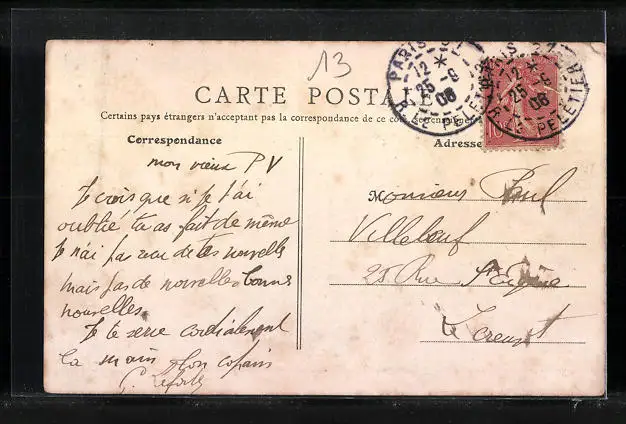 13
CARTE POSTALE
Certains pays étrangers n'acceptent pas la correspondance de ce côté
Correspondance
Adresse
PARIS
12
25-6
06
R. LE PELETIER
PARIS
12
25-6
06
PELETIER
10
mon vieux PV
Je crois que si je t'ai
oublié tu as fait de même
Je n'ai pas eu de tes nouvelles
mais pas de nouvelles bonnes
nouvelles
Je te serre cordialement
la main Ton copain
Monsieur Paul
Villebeuf
25 Rue
Le Creusot